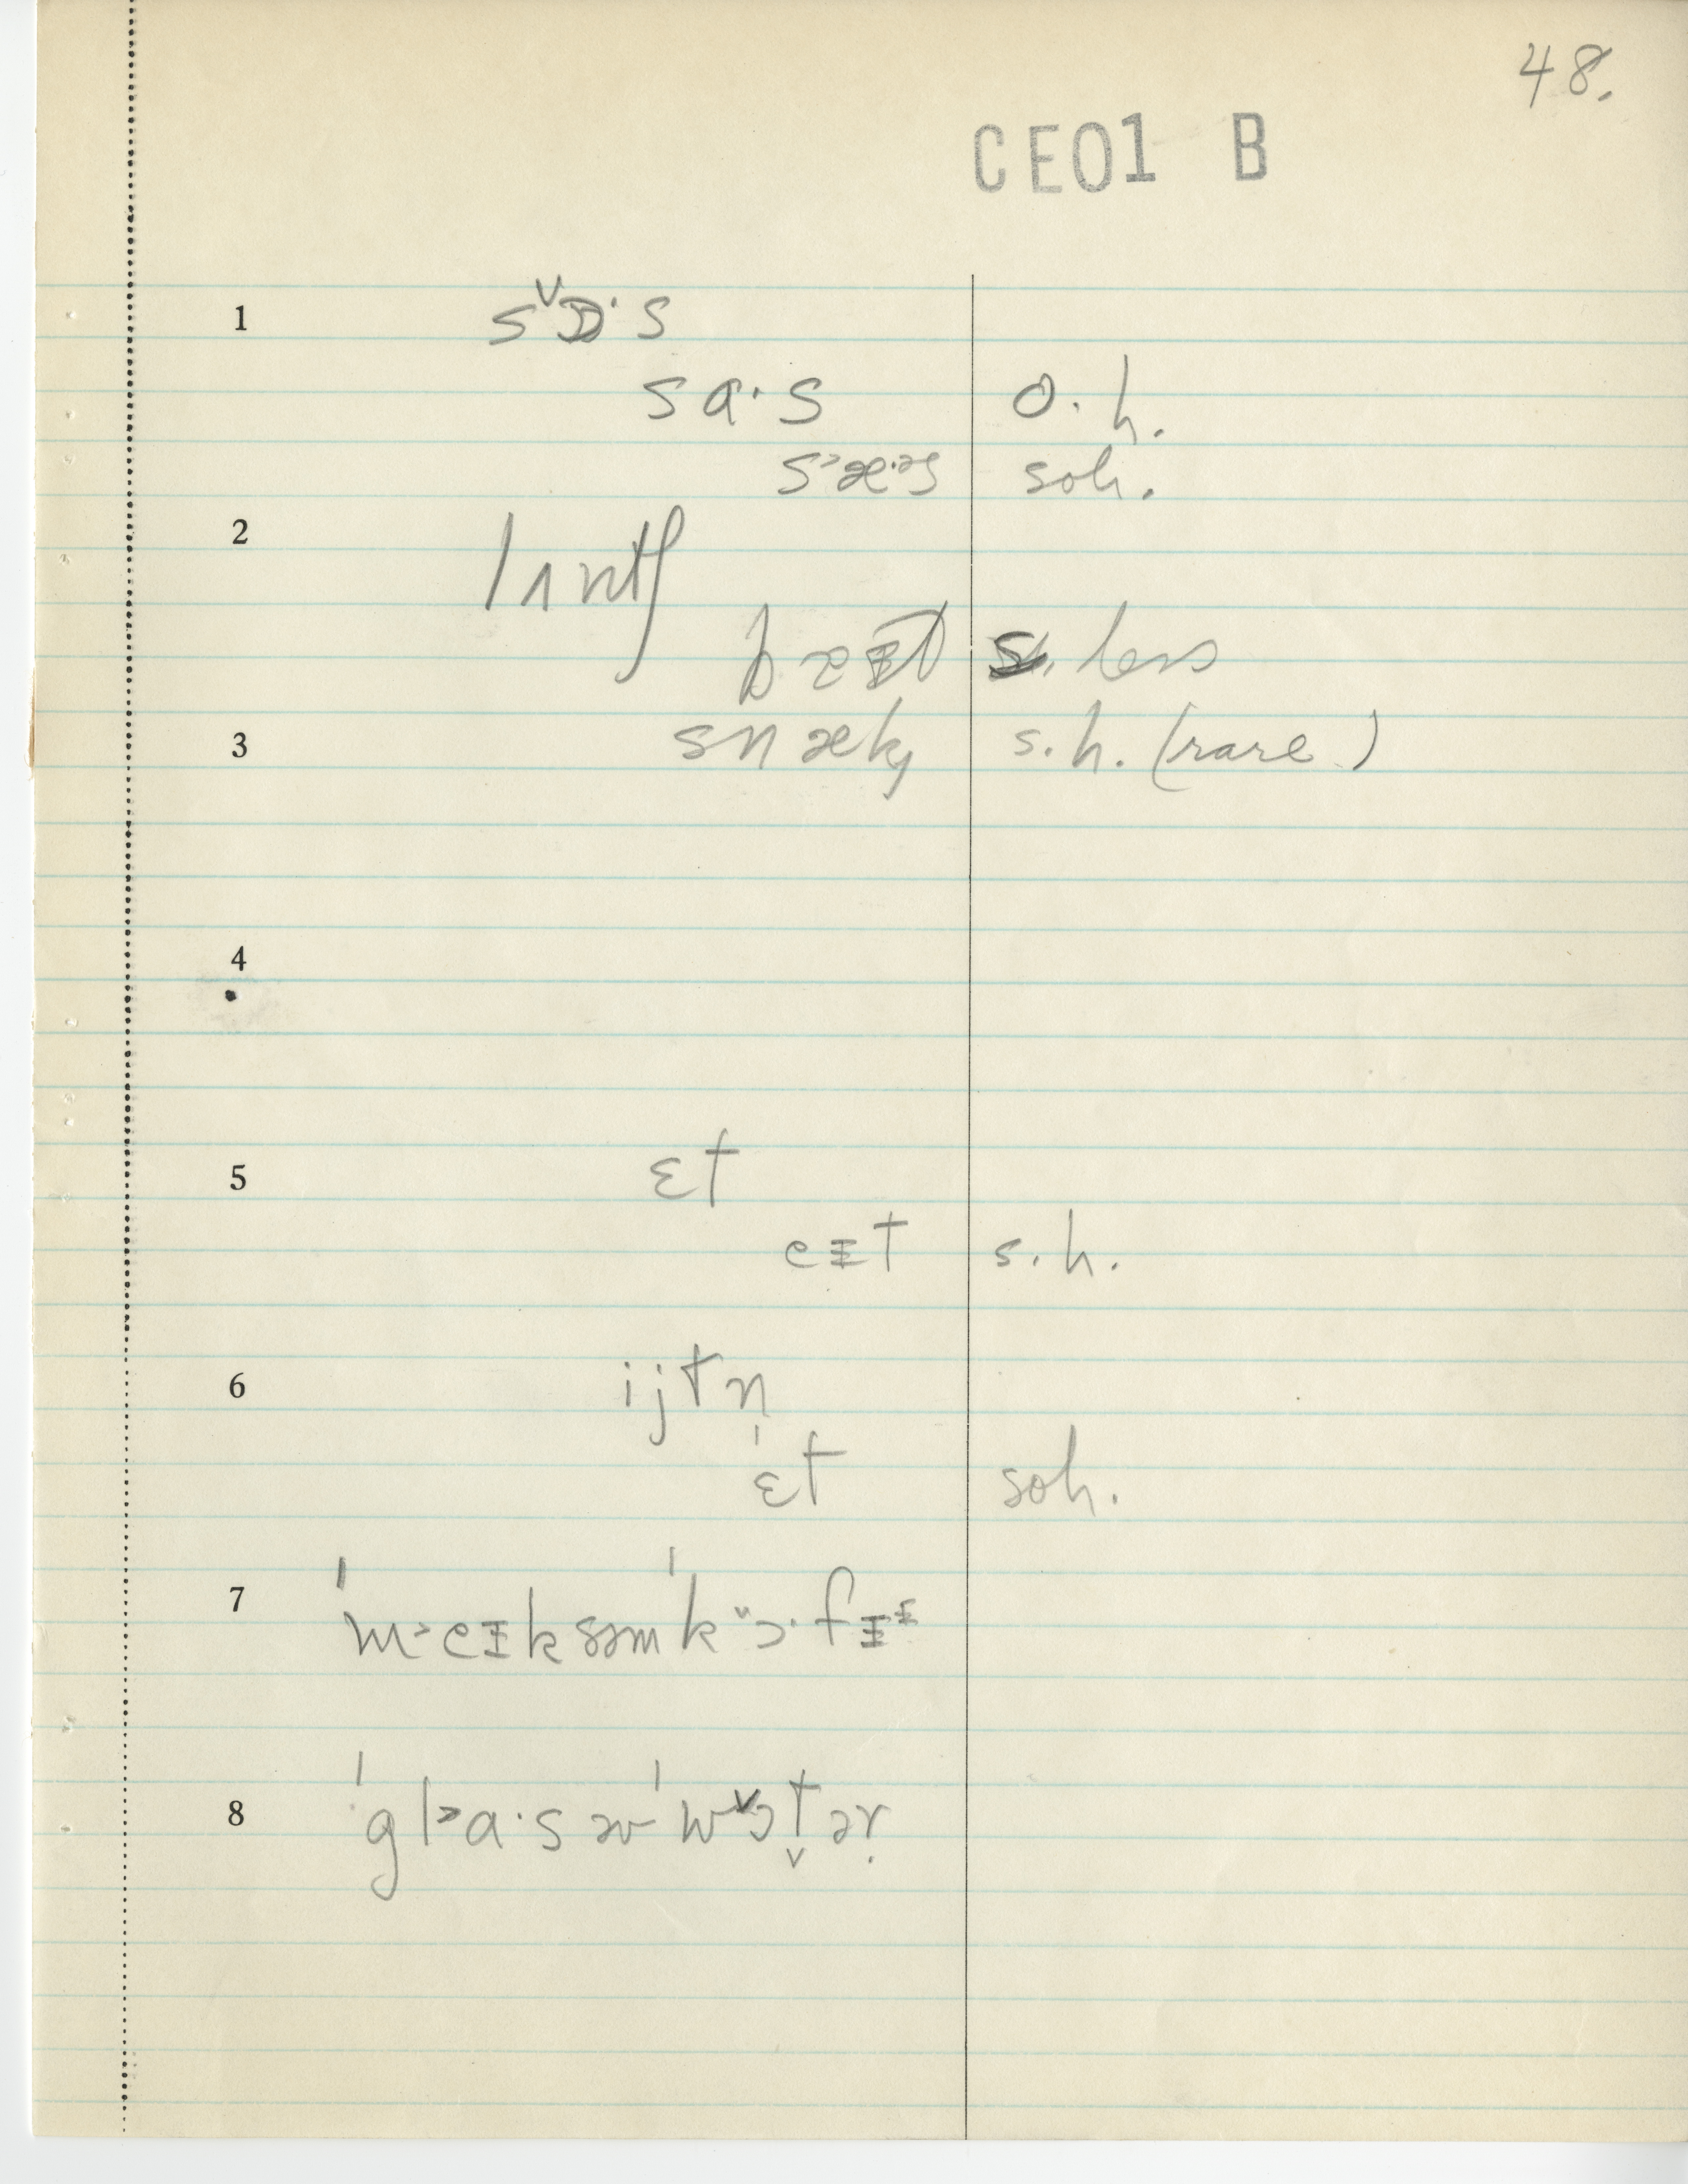 48.
CE01 B
1 sᵛɒ·s
sa·s o.h.
s˃æ·ᵊs soh.
2 lʌntʃ
s. less
3 snæk, s.h. (rare)
4
5 ɛt
eɪt s.h.
6 ijtn̩
ɛt soh.
7 ˈm˃eɪksəmˈkᵛɔ·fɪᶤ
8 ˈgl˃a·səvˈwᵛɔt̬əṛ